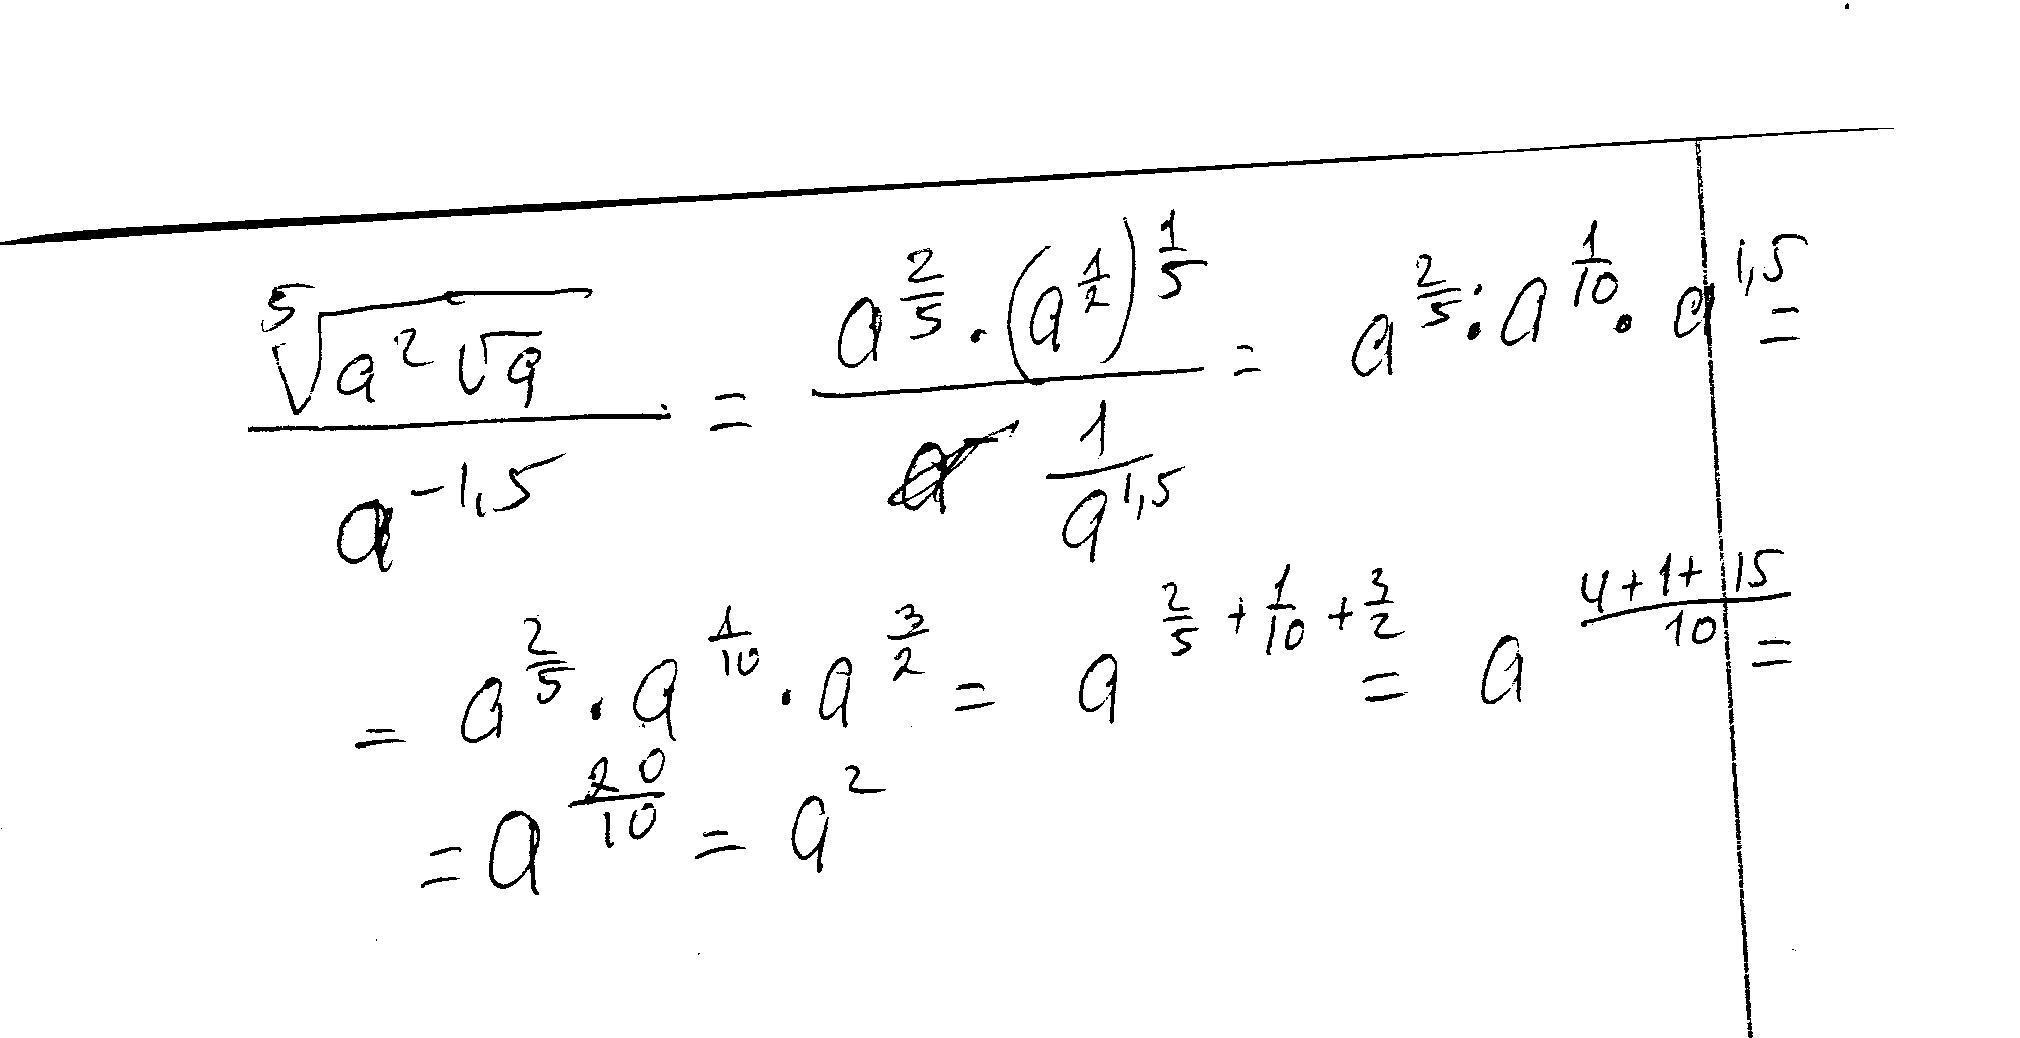 \frac{\sqrt[5]{a^2 \sqrt{a}}}{a^{-1,5}} = \frac{a^{\frac{2}{5}} \cdot \left(a^{\frac{1}{2}}\right)^{\frac{1}{5}}}{\frac{1}{a^{1,5}}} = a^{\frac{2}{5}} \cdot a^{\frac{1}{10}} \cdot a^{1,5} =
= a^{\frac{2}{5}} \cdot a^{\frac{1}{10}} \cdot a^{\frac{3}{2}} = a^{\frac{2}{5} + \frac{1}{10} + \frac{3}{2}} = a^{\frac{4+1+15}{10}} =
= a^{\frac{20}{10}} = a^2